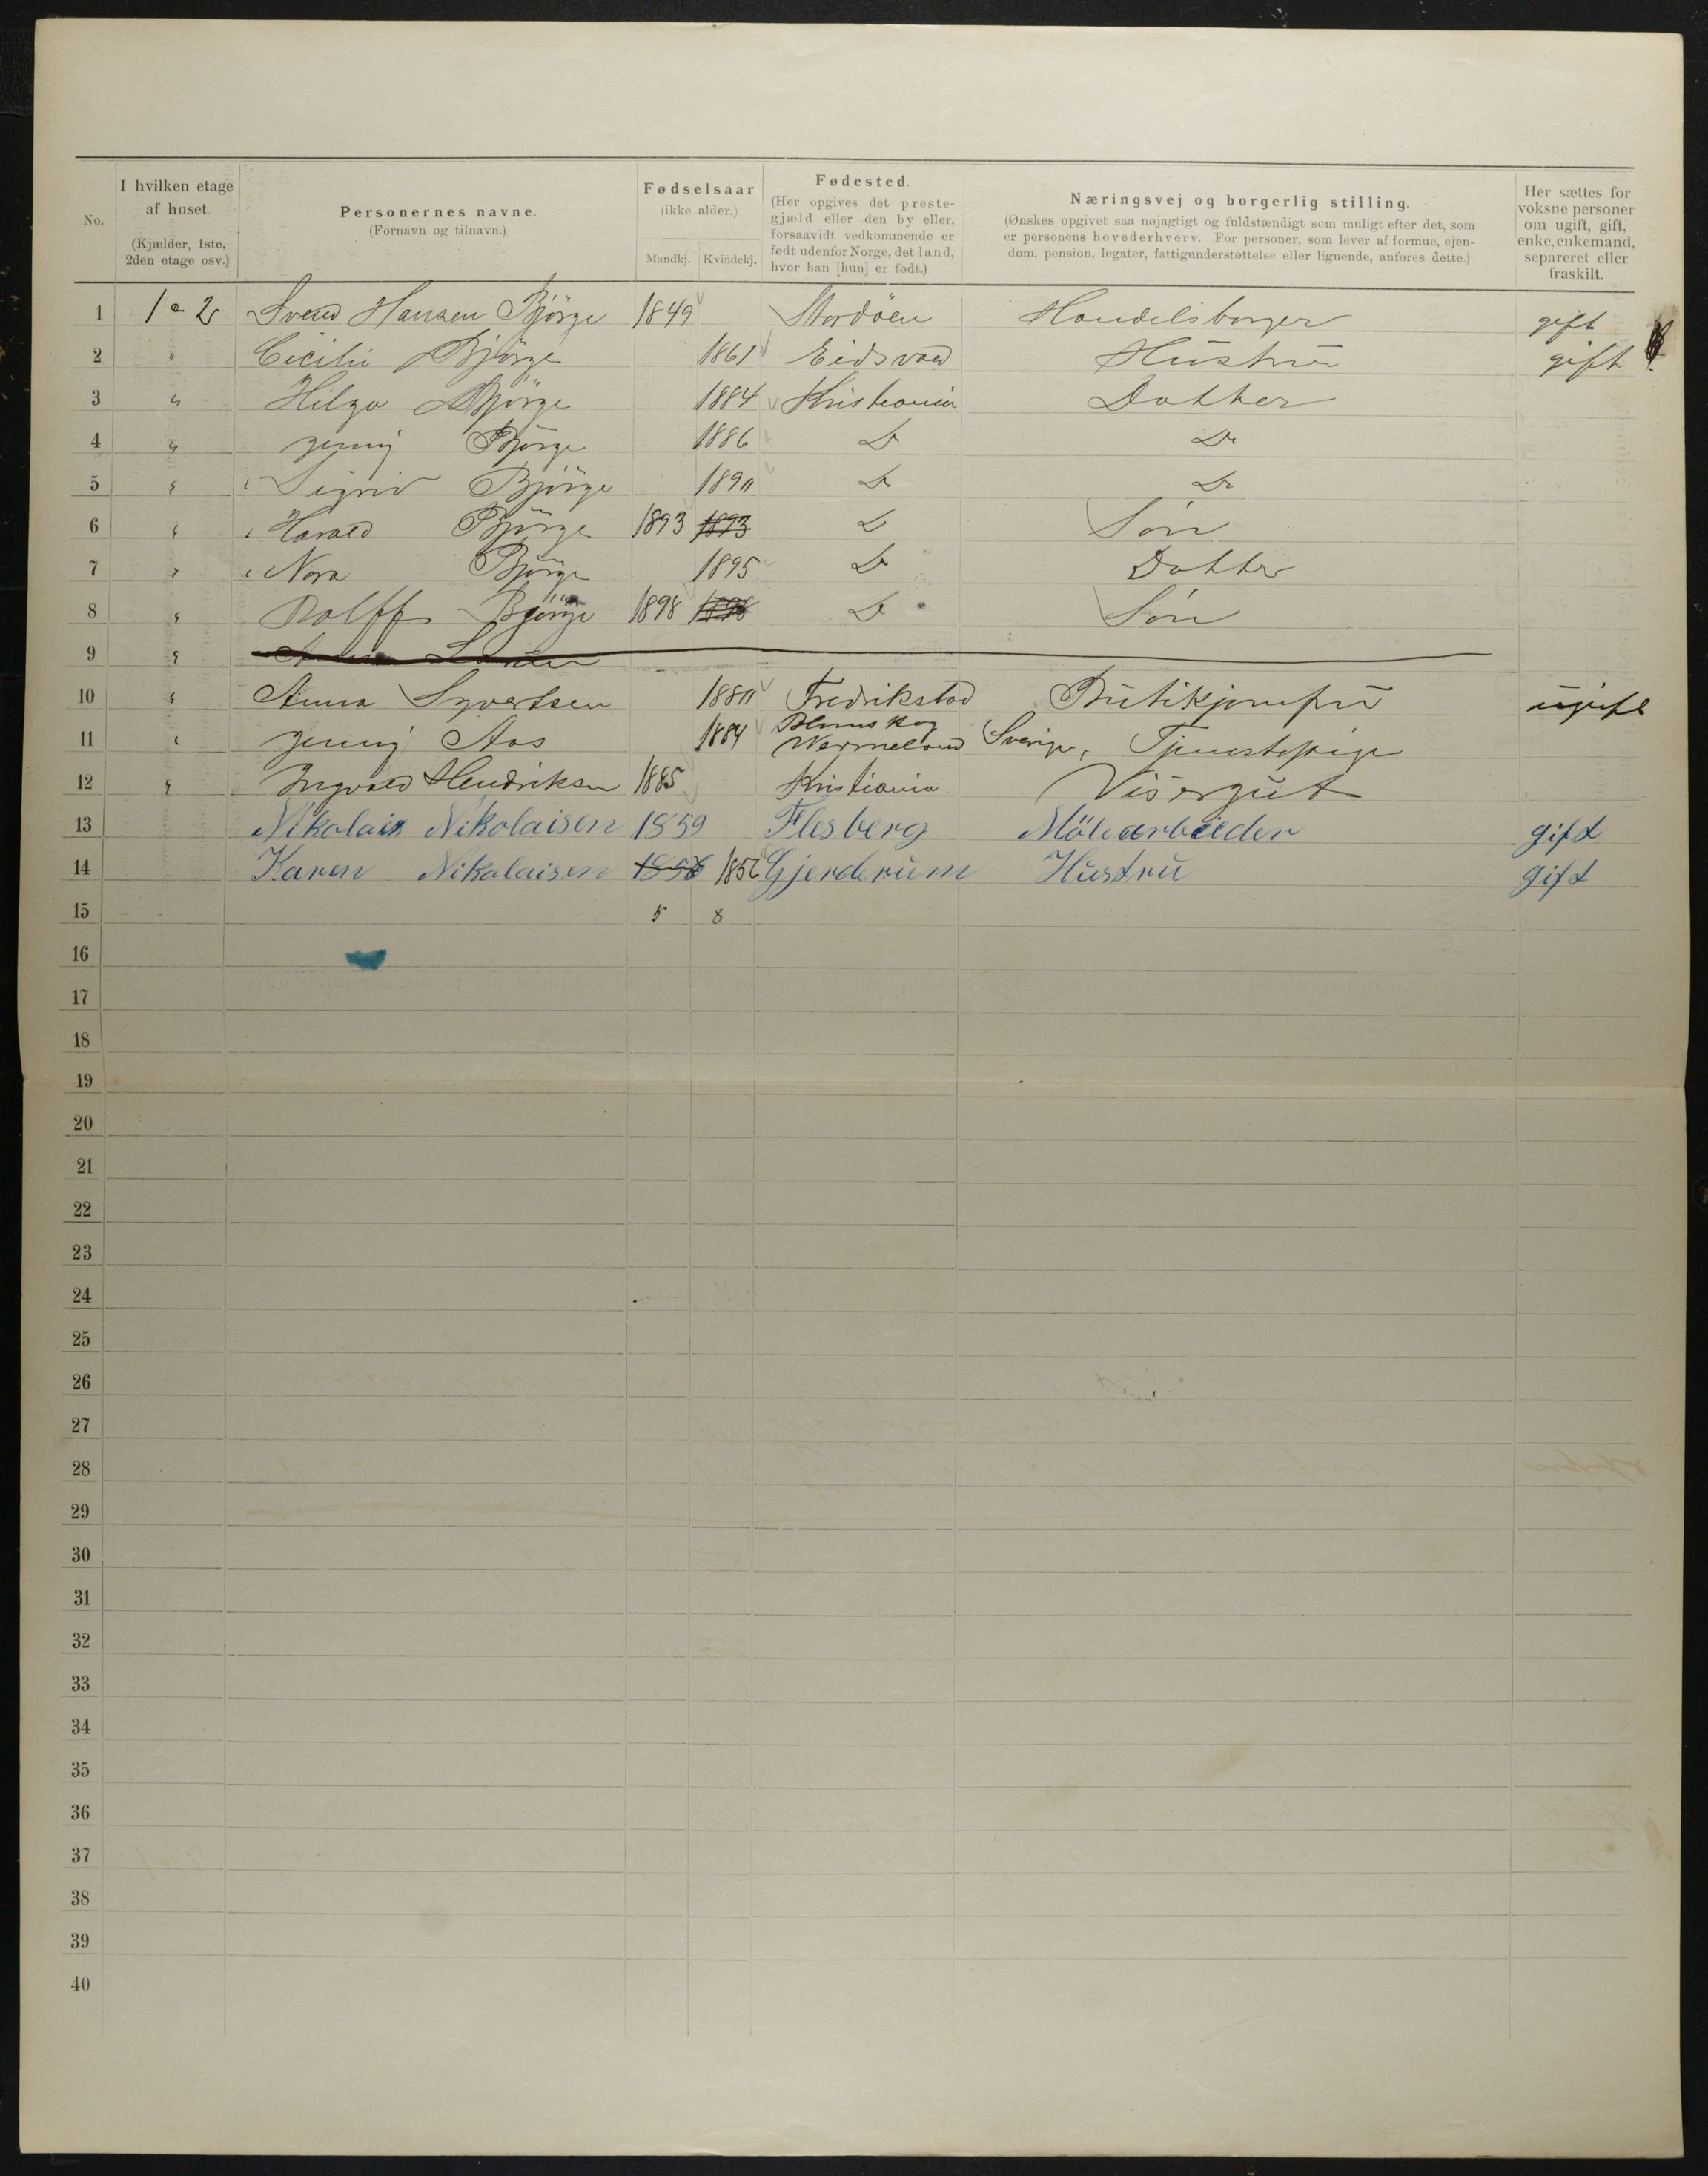 No. I hvilken etage af huset. (Kjælder, 1ste, 2den etage osv.) Personernes navne. (Fornavn og tilnavn.) Fødselsaar (ikke alder.) Mandkj. Kvindekj. Fødested. (Her opgives det prestegjæld eller den by eller, forsaavidt vedkommende er født udenfor Norge, det land, hvor han [hun] er født.) Næringsvej og borgerlig stilling. (Ønskes opgivet saa nøjagtigt og fuldstændigt som muligt efter det, som er personens hovederhverv. For personer, som lever af formue, ejendom, pension, legater, fattigunderstøttelse eller lignende, anføres dette.) Her sættes for voksne personer om ugift, gift, enke, enkemand, separeret eller fraskilt.
1 1 a 2 Svend Hansen Björge 1849 Handelsborger gift
2 " Cicilie Björge 1861 Eidsvold Hustru gift
3 " Helga Björge 1884 Kristiania Datter
4 " Jenny Björge 1886 Do Do
5 " Sigrid Björge 1890 Do Do
6 " Harald Björge 1893 1893 Do Sön
7 " Nora Björge 1895 Do Datter
8 " Rolff Björge 1898 1898 Do Sön
9 "
10 " Anna Syvertsen 1880 Fredrikstad Butikjomfru ugift
11 " Jenny Aas 1884 Blomskog Wermeland Sverige, Tjenestepige
12 " Ingvald Hendriksen 1885 Kristiania Visergut
13 Nikolai Nikolaisen 1859 Flesberg Mölearbeider gift
14 Karen Nikolaisen 1856 1856 Gjerderum Hustru gift
15 5 8
16
17
18
19
20
21
22
23
24
25
26
27
28
29
30
31
32
33
34
35
36
37
38
39
40